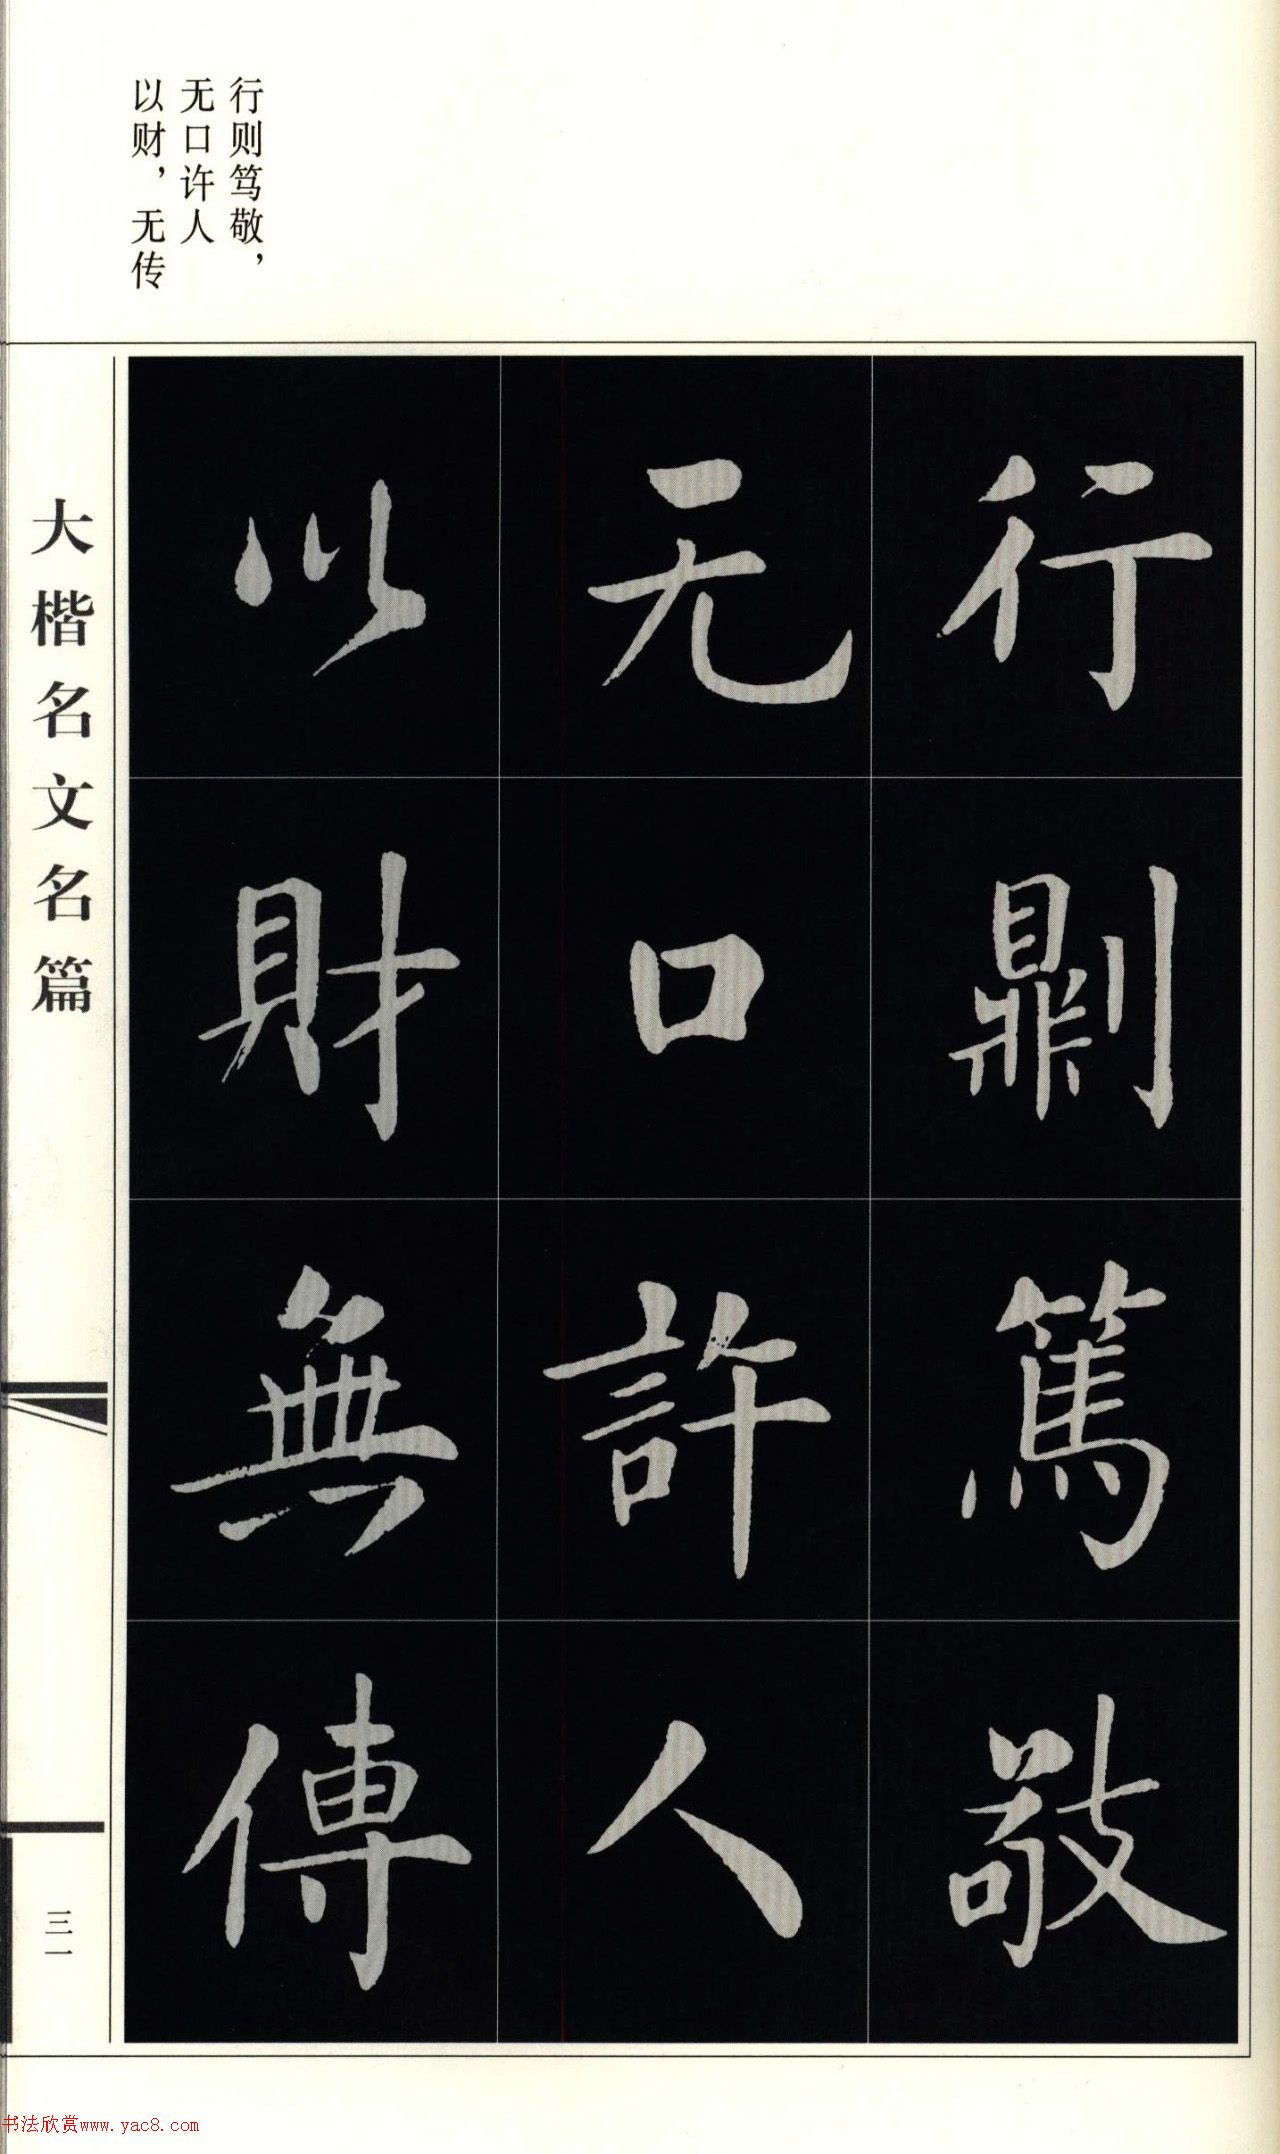 行则笃敬，
无口许人
以财，无传
行鼎刂篤敬
无口許人
以財無傳
大楷名文名篇
三一
书法欣赏www.yac8.com